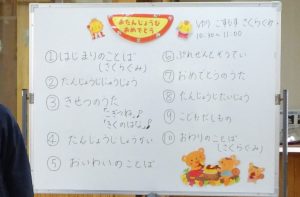 おたんじょうび
おめでとう
10:30〜11:00
①はじまりのことば
(さくらぐみ)
②たんじょうじじょうじょう
③きせつのうた
「こぎつね♪」
「きくのはな♪」
④たんじょうじしょうかい
⑤おいわいのことば
⑥ぷれぜんとぞうてい
⑦おめでとうのうた
⑧たんじょうじたいじょう
⑨こどもだしもの
⑩おわりのことば
(さくらぐみ)